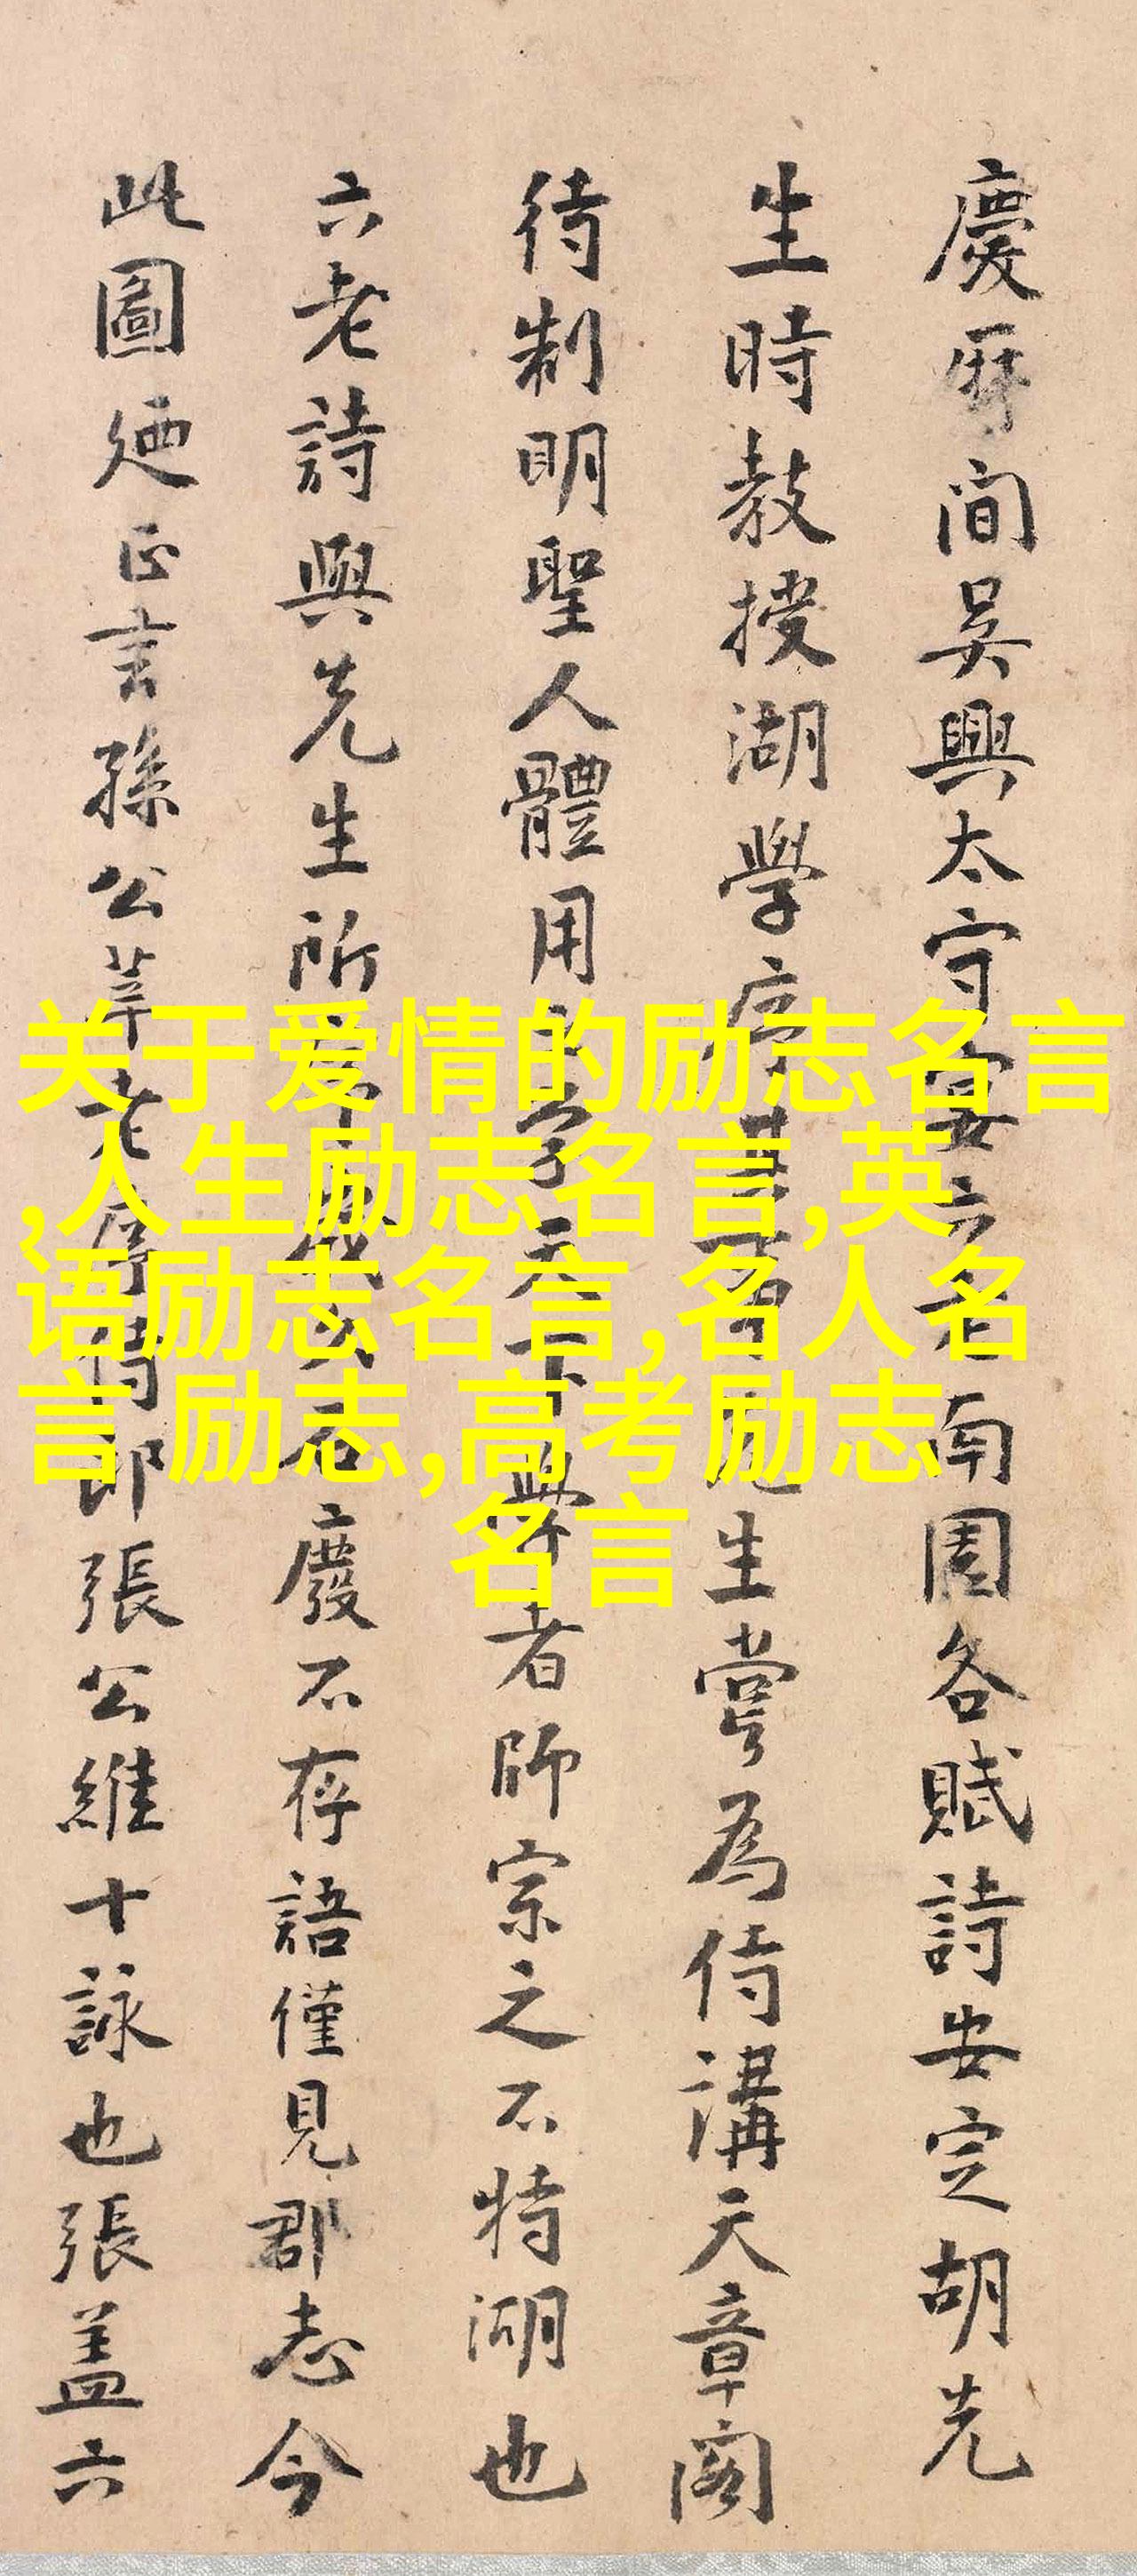 慶曆間吳興太守宴六老南園各賦詩安定胡先
生時教授湖學序其首先生嘗為侍講天章閣
待制明聖人體用之學天下學者師宗之不特湖也
六老詩與先生所石廢不存語僅見郡志今
此圖廼正言孫公莘老序侍郎張公維十詠也張蓋六
关于爱情的励志名言
,人生励志名言,英
语励志名言,名人名
言 励志,高考励志
名言